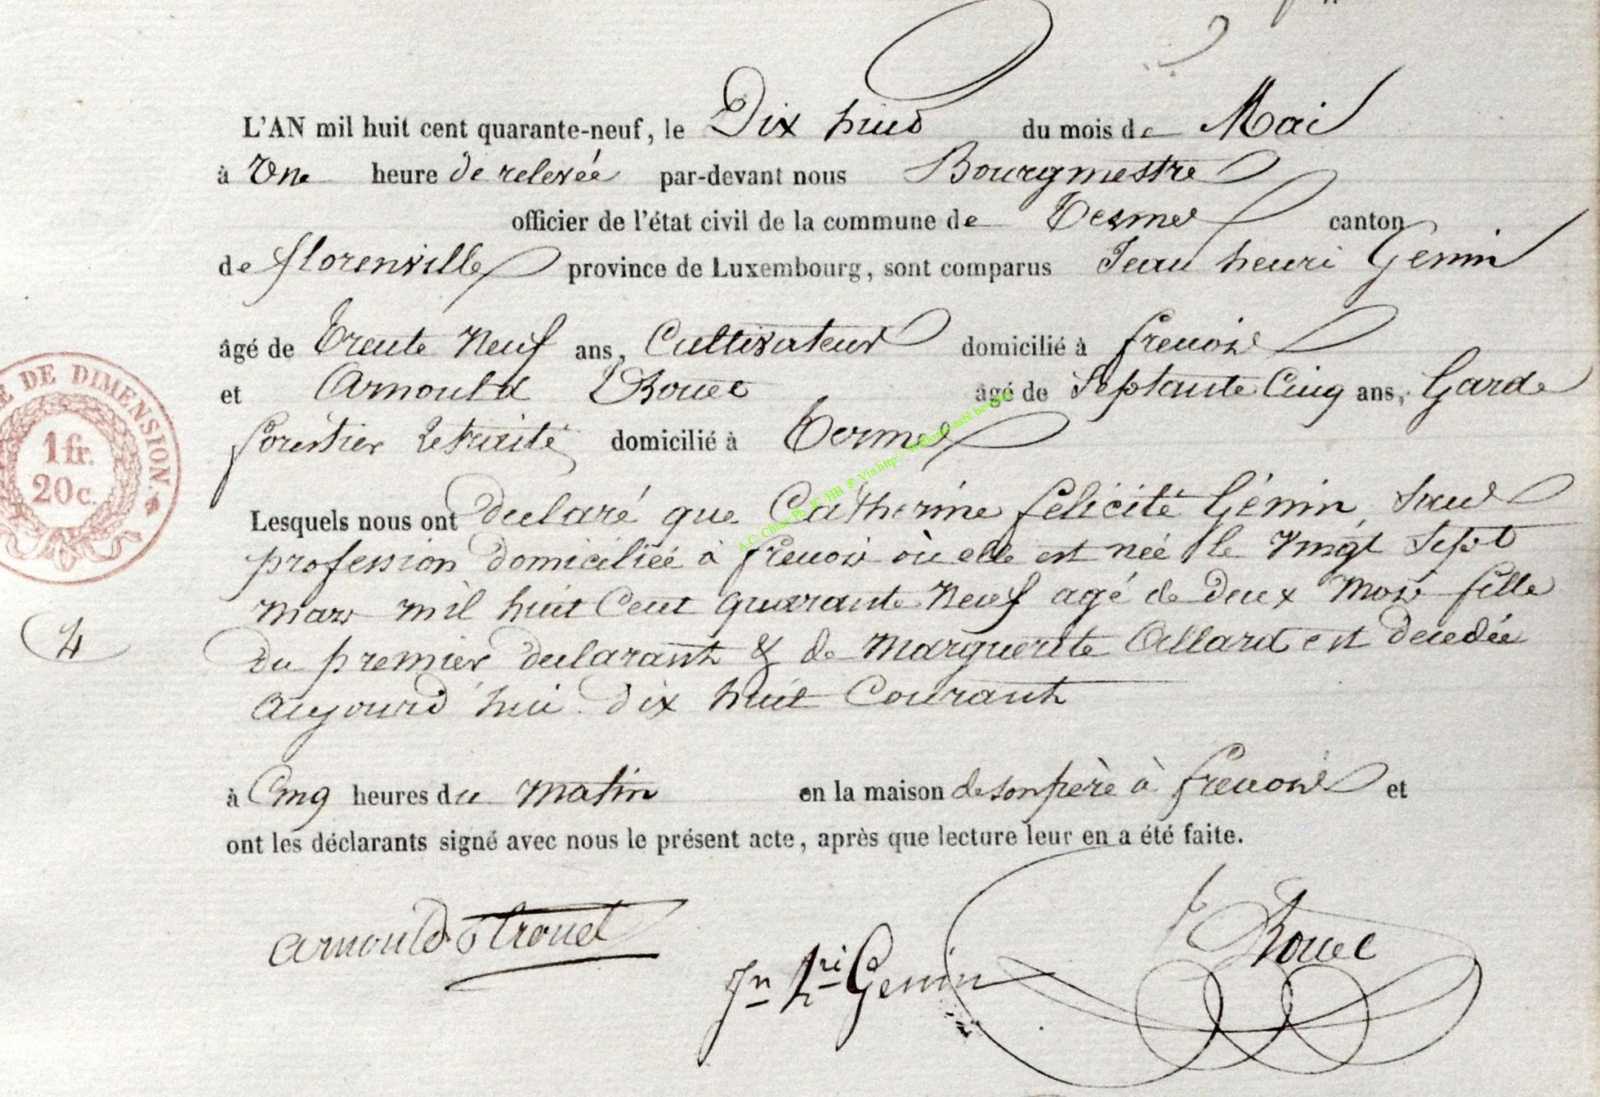 L'AN mil huit cent quarante-neuf, le Dix huit du mois de Mai
à Une heure de relevée par-devant nous Bourgmestre
officier de l'état civil de la commune de Termes canton
de florenville province de Luxembourg, sont comparus Jean henri Genin
âgé de Trente Neuf ans, Cultivateur domicilié à frenois
et Arnould Trouet âgé de Septante Cinq ans, Garde
forestier retraité domicilié à Termes
Lesquels nous ont declaré que Catherine félicité Génin sans
profession domiciliée à frenois où elle est née le vingt Sept
mars mil huit Cent quarante Neuf agé de deux mois fille
du premier declarant & de marguerite Allard est decedée
aujourd'hui dix huit Courant
à Cinq heures du matin en la maison de son père à frenois et
ont les déclarants signé avec nous le présent acte, après que lecture leur en a été faite.
E DE DIMENSION.
1 fr.
20 c.
4
arnould trouet
Jn hri Genin
Trouet